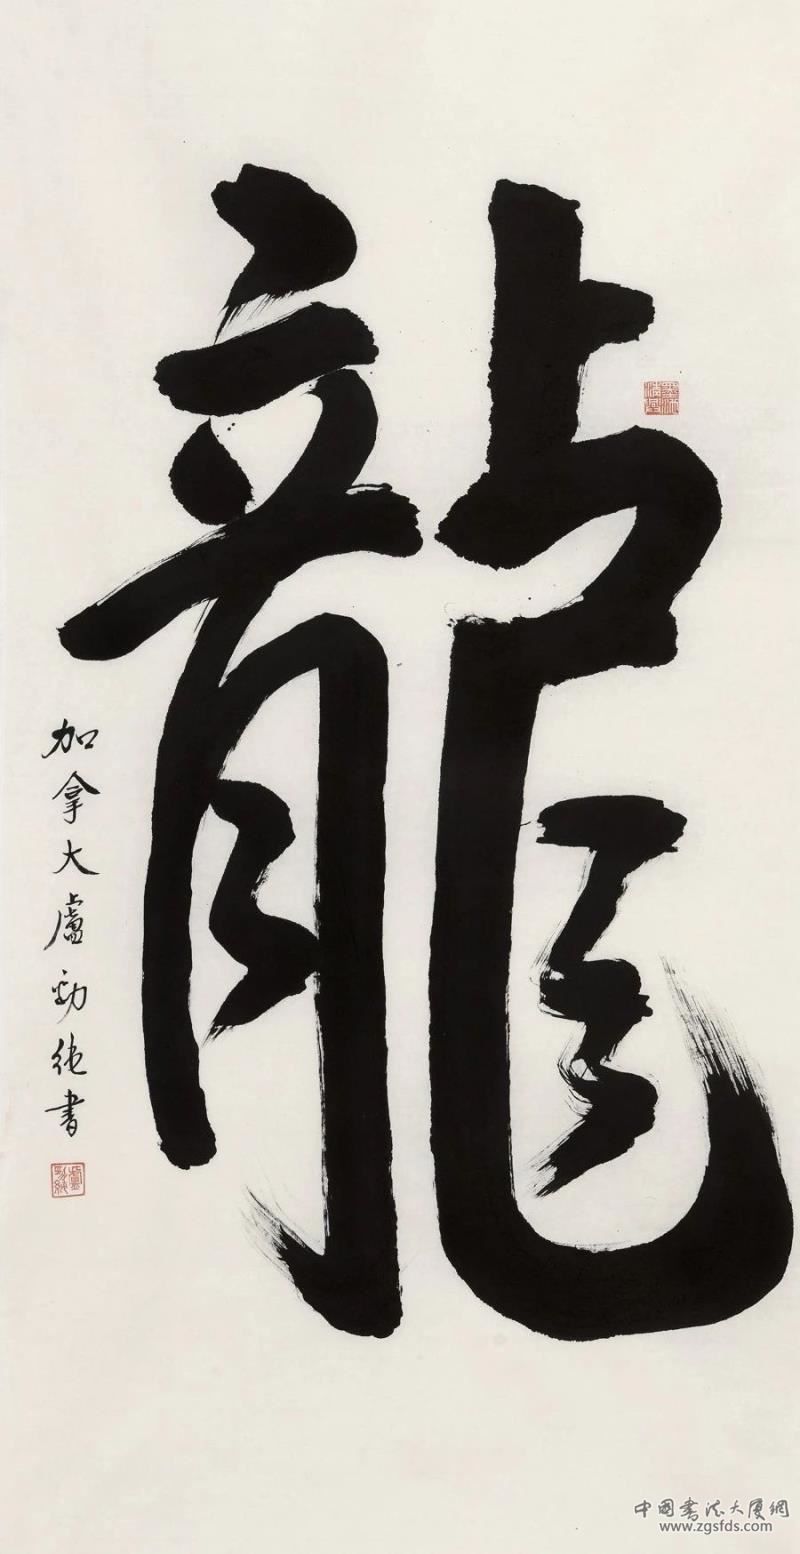 龍
加拿大盧勁純書
中國書法大厦網
www.zgsfds.com